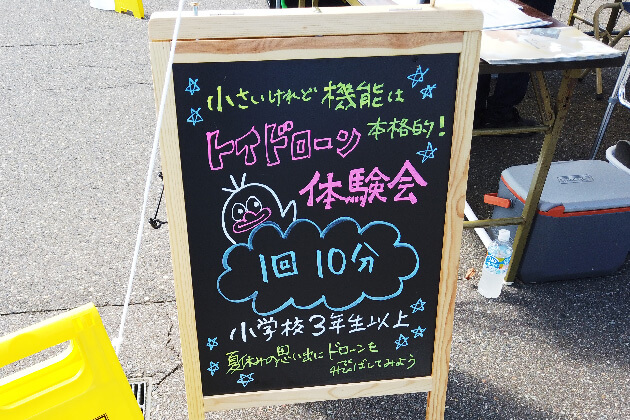 小さいけれど機能は
本格的!
トイドローン
体験会
1回10分
小学校3年生以上
夏休みの思い出にドローンを
飛ばしてみよう